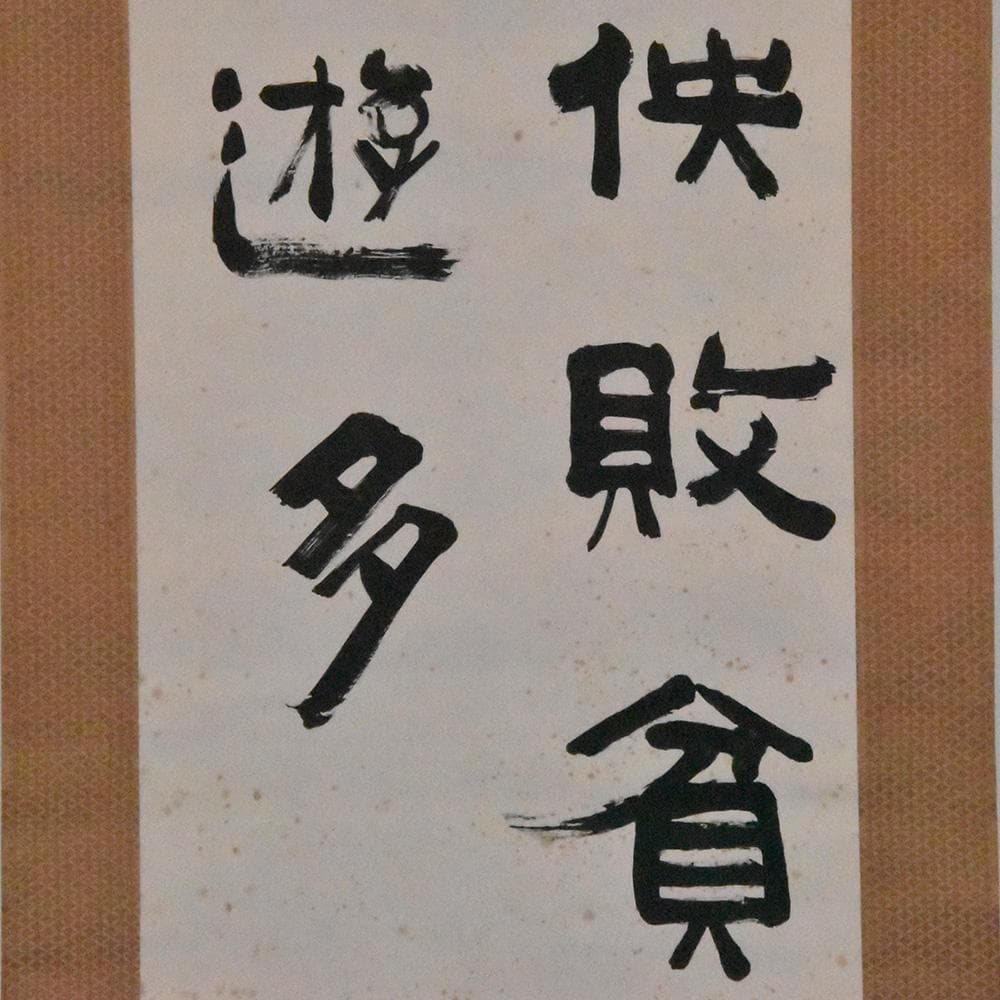 佒敗貧
遊多